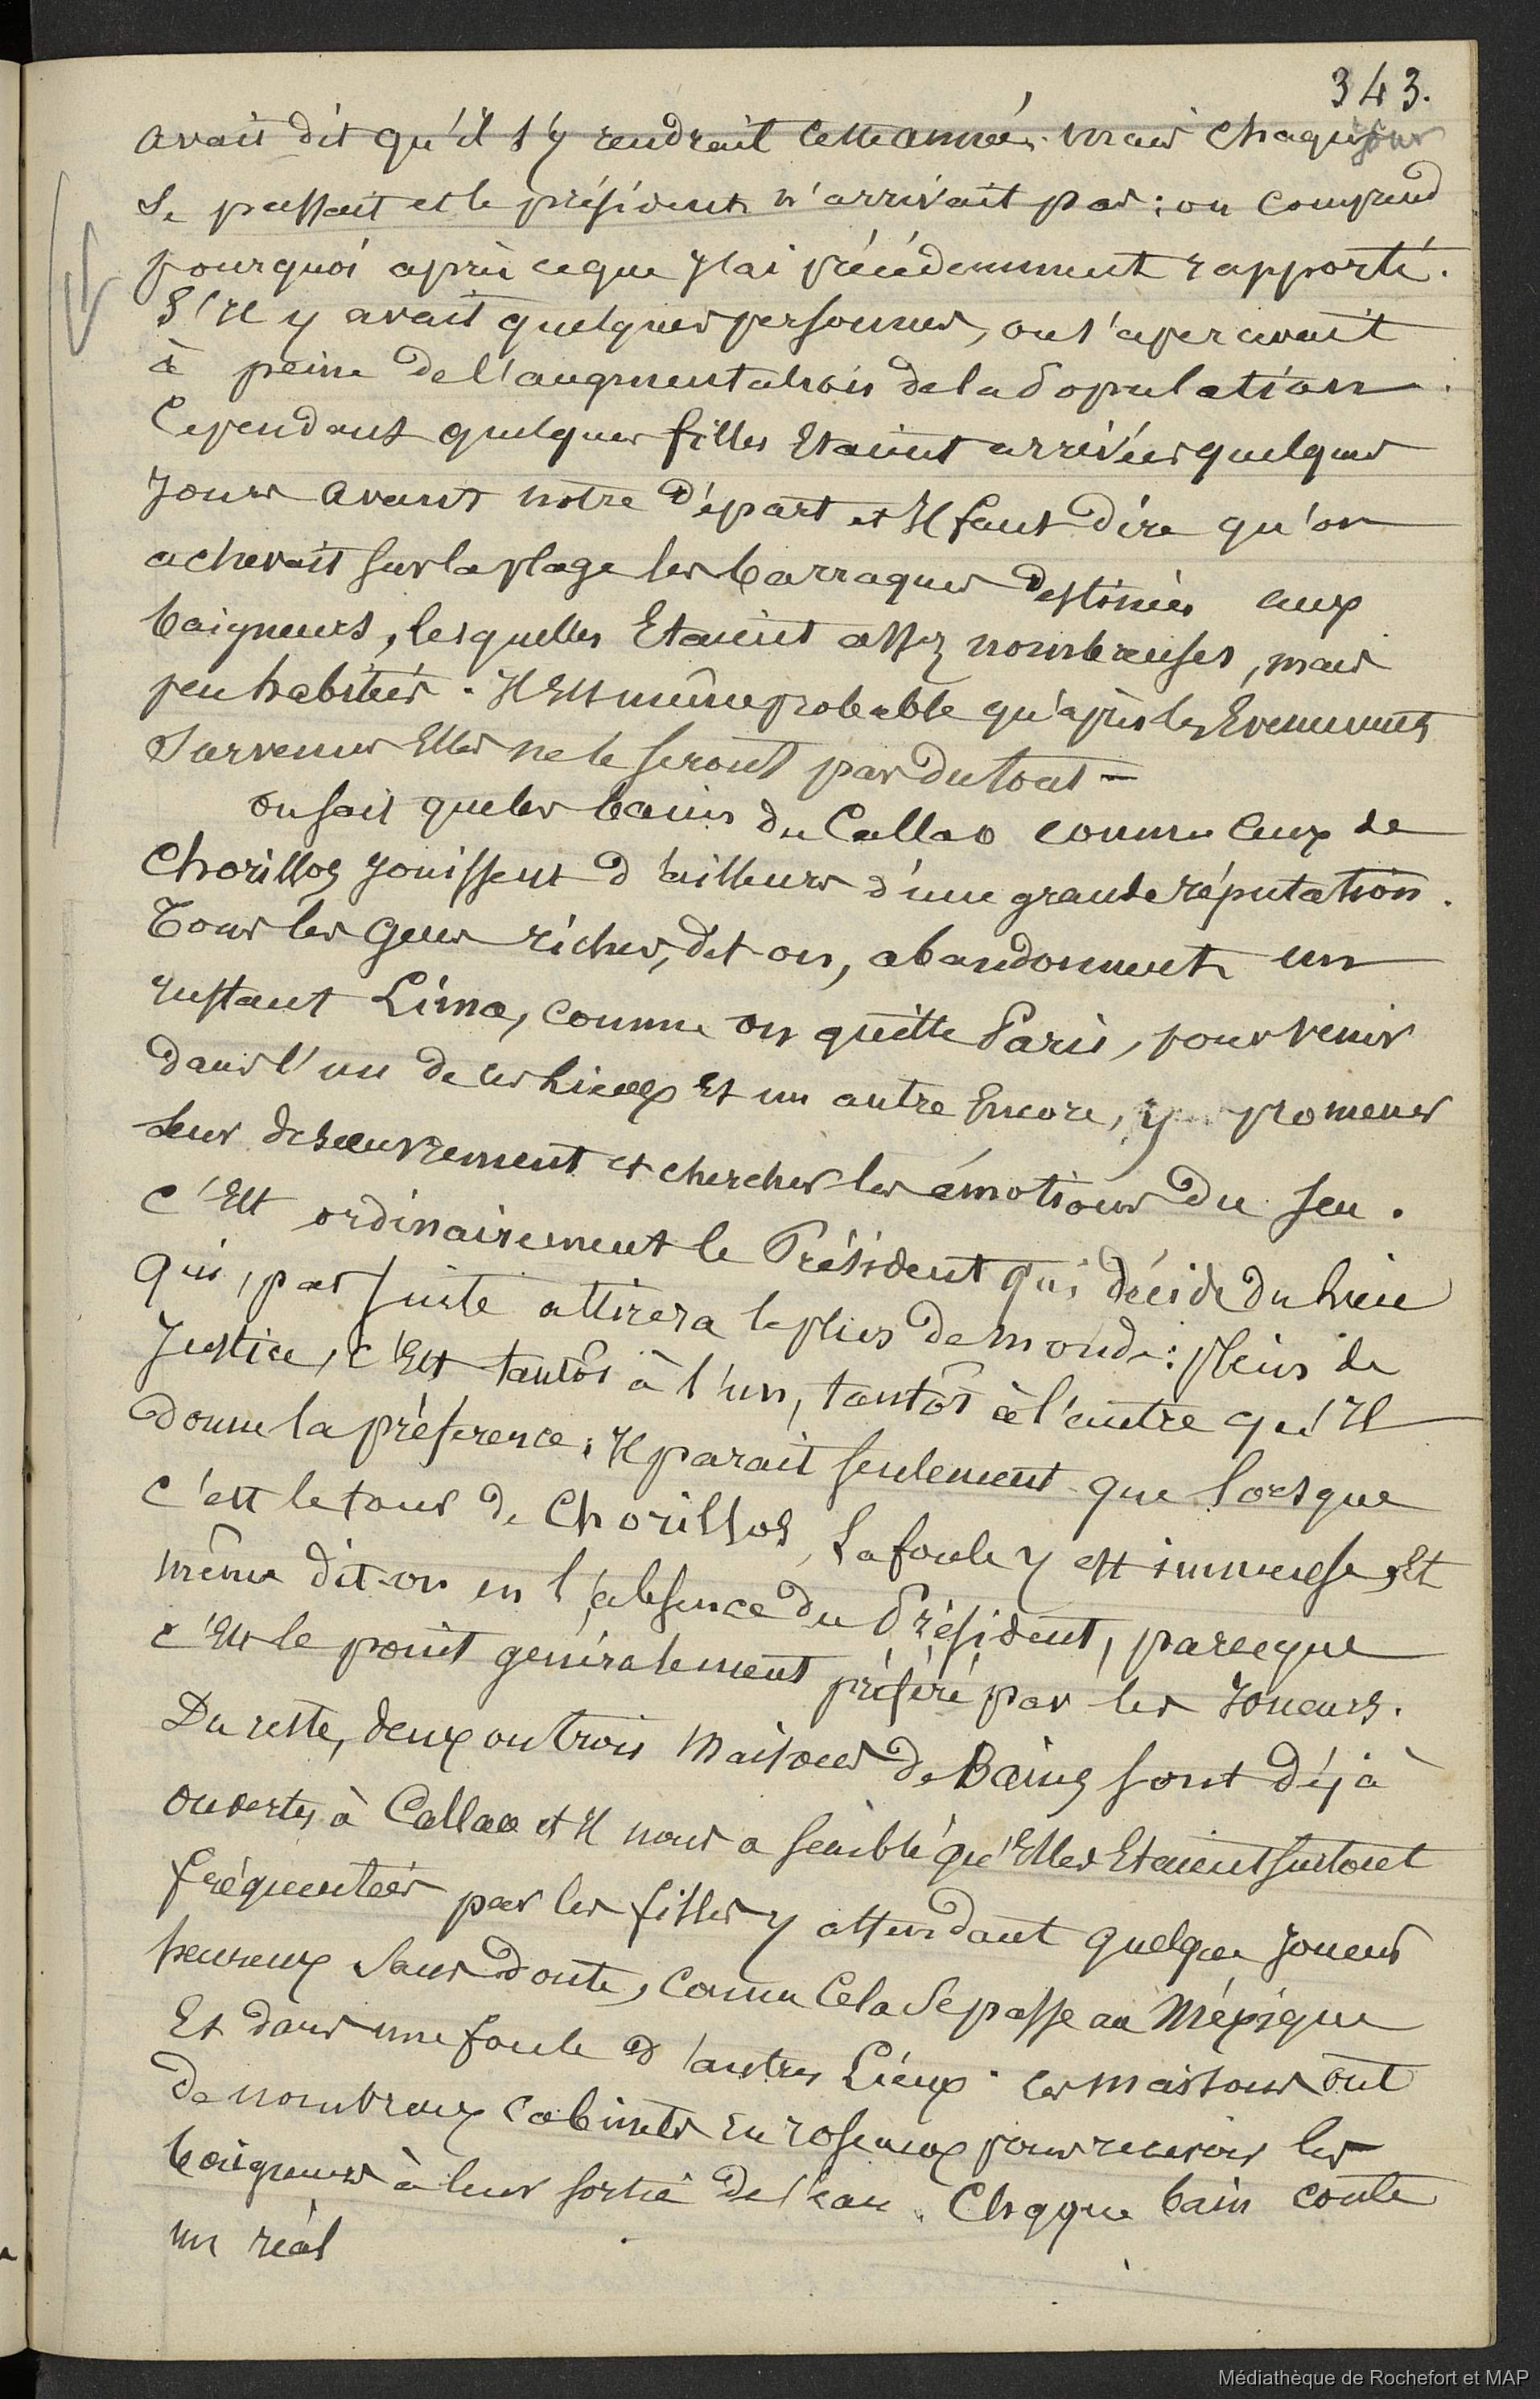 343.
avait dit qu'il s'y rendrait cette année. mais chaque jour
se passait et le président n'arrivait pas : on comprend
pourquoi après ce que j'ai précédemment rapporté.
S'Il y avait quelques personnes, on s'apercevait
à peine de l'augmentation de la population.
Cependant quelques filles Etaient arrivées quelques
Jours avant notre départ et Il faut dire qu'on
achevait sur la plage les barraques destinées aux
baigneurs, lesquelles Etaient assez nombreuses, mais
peu habitées. Il Est même probable qu'après les Evenements
survenus Elles ne le seront pas du tout —
on sait que les bains du Callao comme ceux de
Chorillos Jouissent d'ailleurs d'une grande réputation.
Tous les gens riches, dit-on, abandonnent un
Instant Lima, comme on quitte Paris, pour venir
dans l'un de ces lieux Et un autre Encore, y promener
leur desœuvrement et chercher les émotions du jeu.
C'Est ordinairement le Président qui décide du lieu
qui, par suite attirera le plus de monde : plein de
Justice, c'Est tantôt à l'un, tantôt à l'autre qu'Il
donne la préference ; Il parait seulement que lorsque
c'est le tour de Chorillos, La foule y est immense, Et
même dit-on en l'absence du Président, parceque
c'Est le point généralement préféré par les Joueurs.
Du reste, deux ou trois Maisons de Bains sont déjà
ouvertes à Callao et Il nous a semblé qu'Elles Etaient surtout
fréquentées par les filles y attendant quelque Joueur
heureux sans doute, comme cela se passe au Méxique
Et dans une foule d'autres Lieux. ces maisons ont
de nombreux cabinets En roseaux pour recevoir les
baigneurs à leur sortie de l'eau. Chaque bain coute
un réal
Médiathèque de Rochefort et MAP